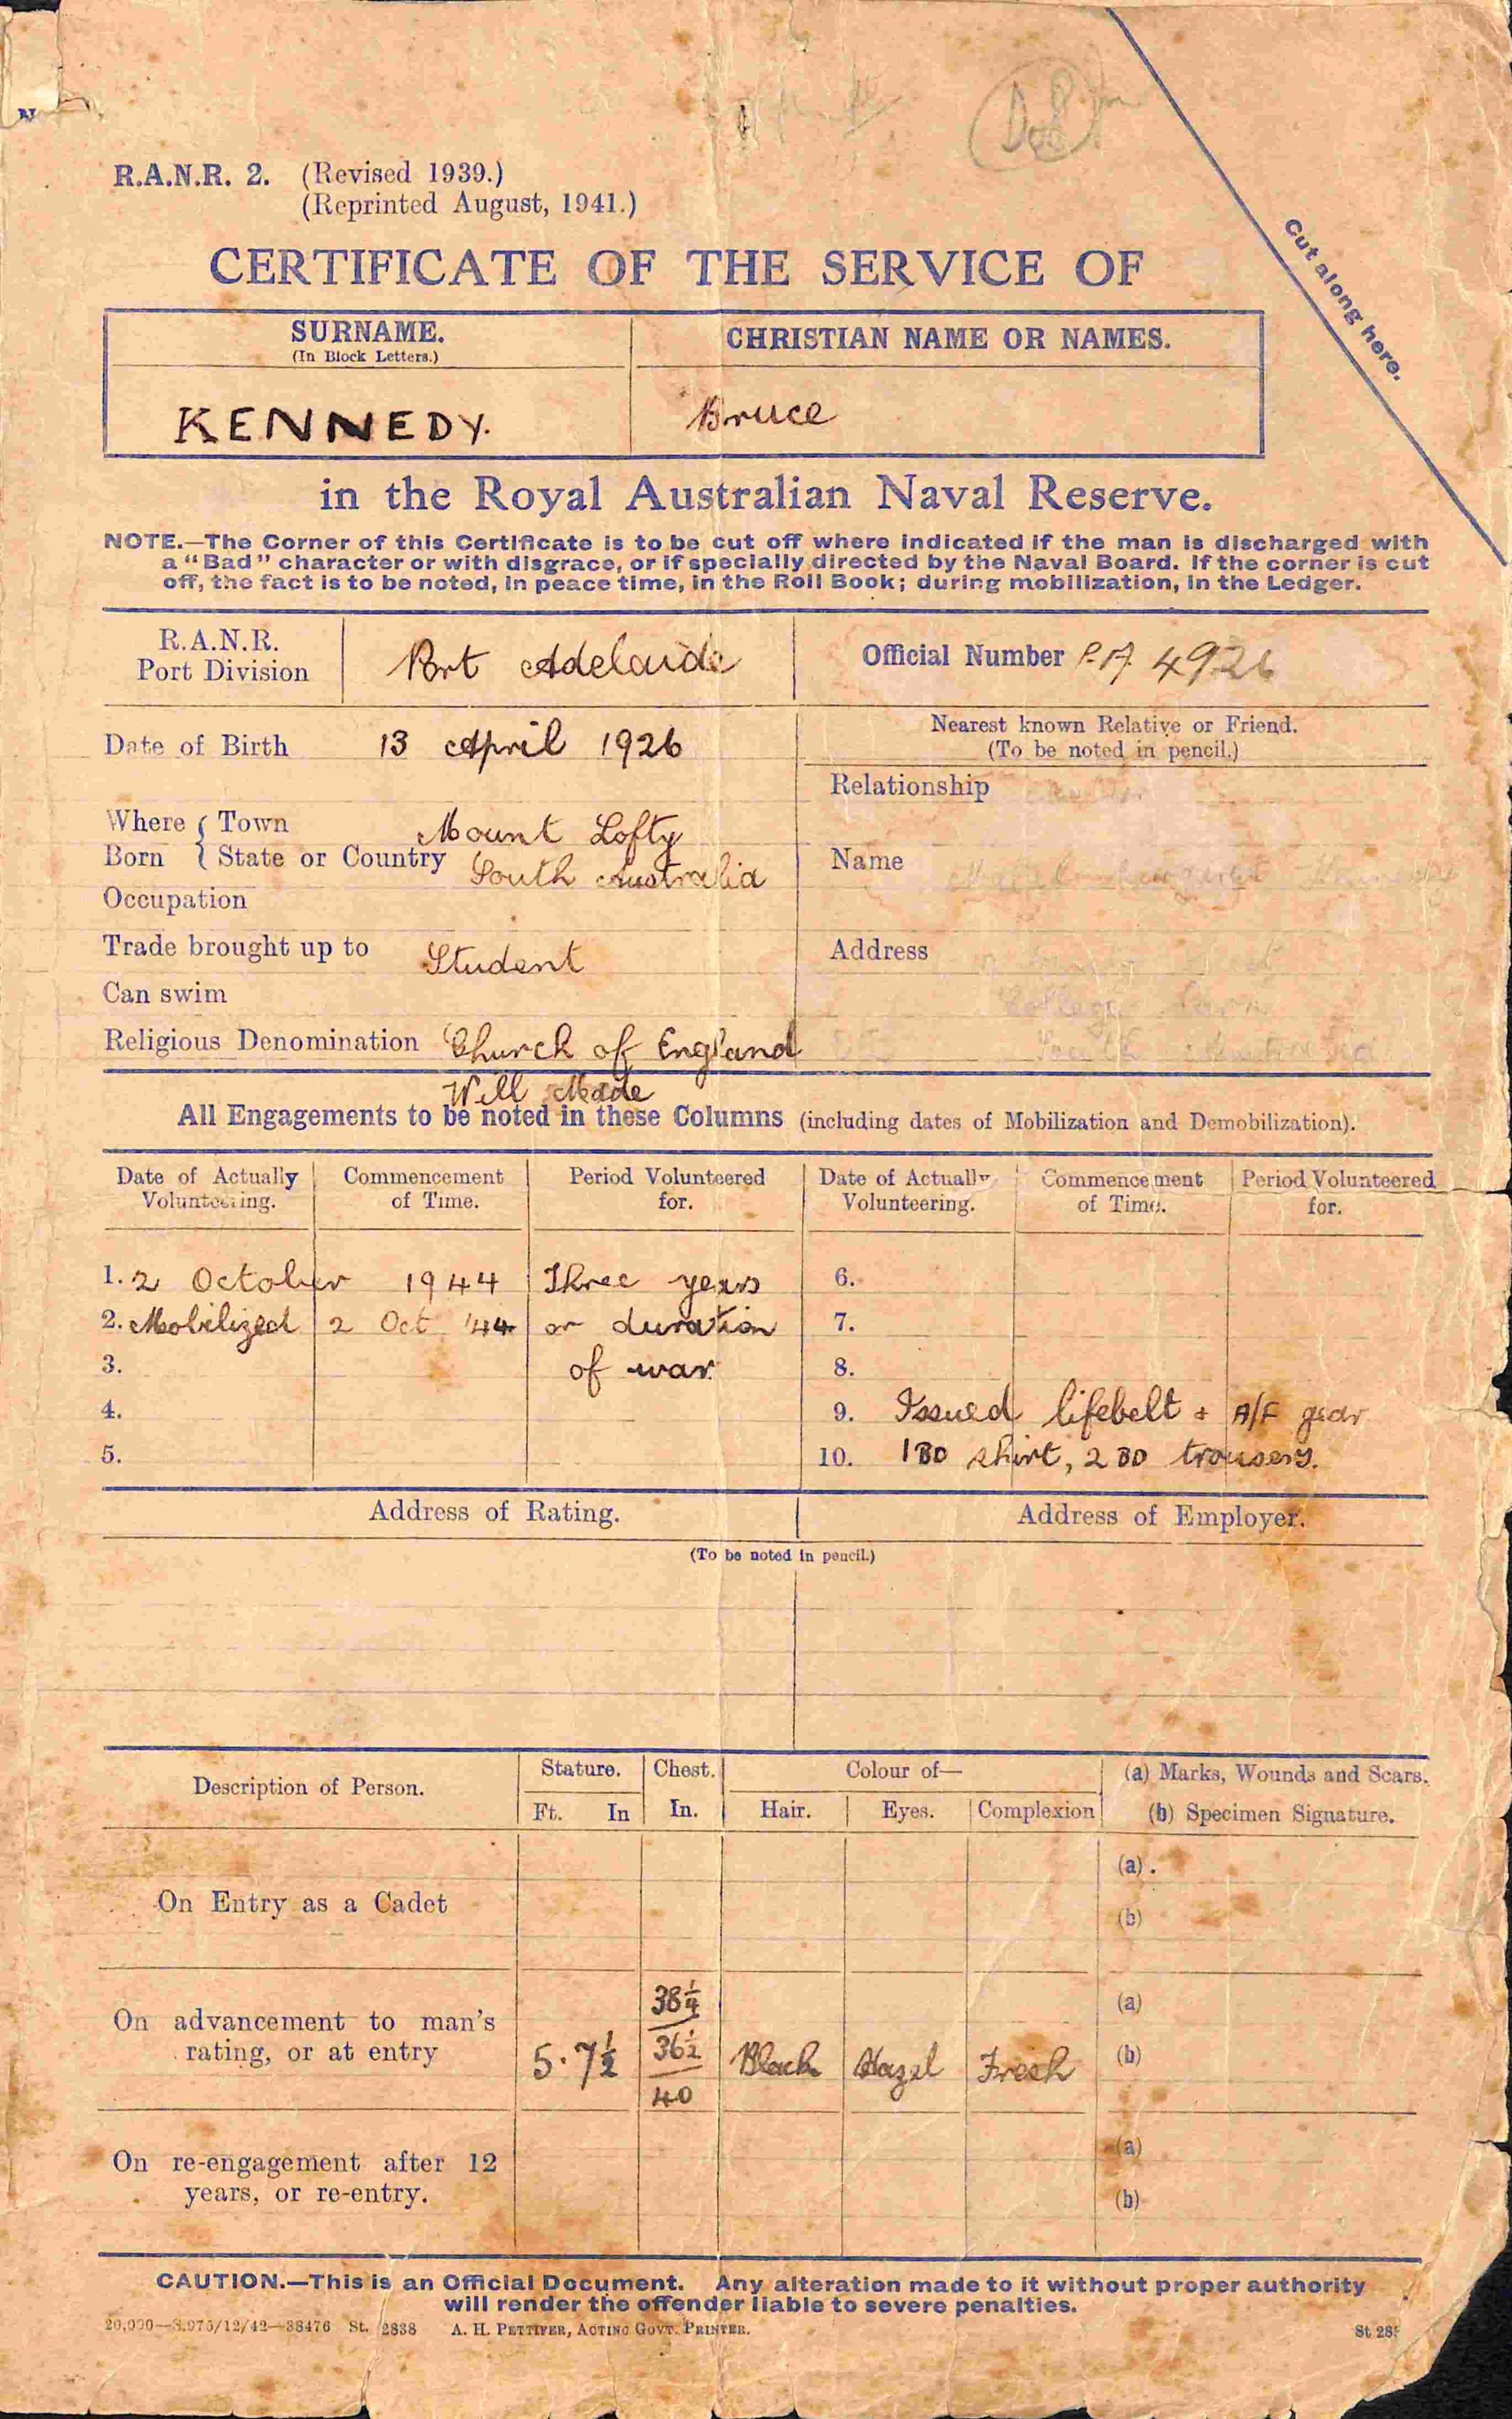 R.A.N.R. 2. (Revised 1939.)
(Reprinted August, 1941.)
Cut along here.
CERTIFICATE OF THE SERVICE OF
SURNAME. CHRISTIAN NAME OR NAMES.
(In Block Letters.)
KENNEDY. Bruce
in the Royal Australian Naval Reserve.
NOTE.—The Corner of this Certificate is to be cut off where indicated if the man is discharged with
a "Bad" character or with disgrace, or if specially directed by the Naval Board. If the corner is cut
off, the fact is to be noted, in peace time, in the Roll Book; during mobilization, in the Ledger.
R.A.N.R.
Port Division Port Adelaide Official Number P.A. 4926
Nearest known Relative or Friend.
Date of Birth 13 April 1926 (To be noted in pencil.)
Relationship
Where Town Mount Lofty
Born State or Country South Australia Name
Occupation
Trade brought up to Student Address
Can swim College
Religious Denomination Church of England South Australia
Will Made
All Engagements to be noted in these Columns (including dates of Mobilization and Demobilization).
Date of Actually Commencement Period Volunteered Date of Actually Commencement Period Volunteered
Volunteering. of Time. for. Volunteering. of Time. for.
1. 2 October 1944 Three years 6.
2. Mobilized 2 Oct '44 or duration 7.
3. of war. 8.
4. 9. Issued lifebelt + A/F gear
5. 10. 1 BD shirt, 2 BD trousers.
Address of Rating. Address of Employer.
(To be noted in pencil.)
Description of Person. Stature. Chest. Colour of— (a) Marks, Wounds and Scars.
Ft. In In. Hair. Eyes. Complexion (b) Specimen Signature.
(a).
On Entry as a Cadet
(b)
38¼
On advancement to man's (a)
rating, or at entry 5.7½ 36½ Black Hazel Fresh (b)
40
(a)
On re-engagement after 12
years, or re-entry.
(b)
CAUTION.—This is an Official Document. Any alteration made to it without proper authority
will render the offender liable to severe penalties.
20,000—3.975/12/42—38476 St. 2838 A. H. PETTIFER, ACTING GOVT. PRINTER. St 28